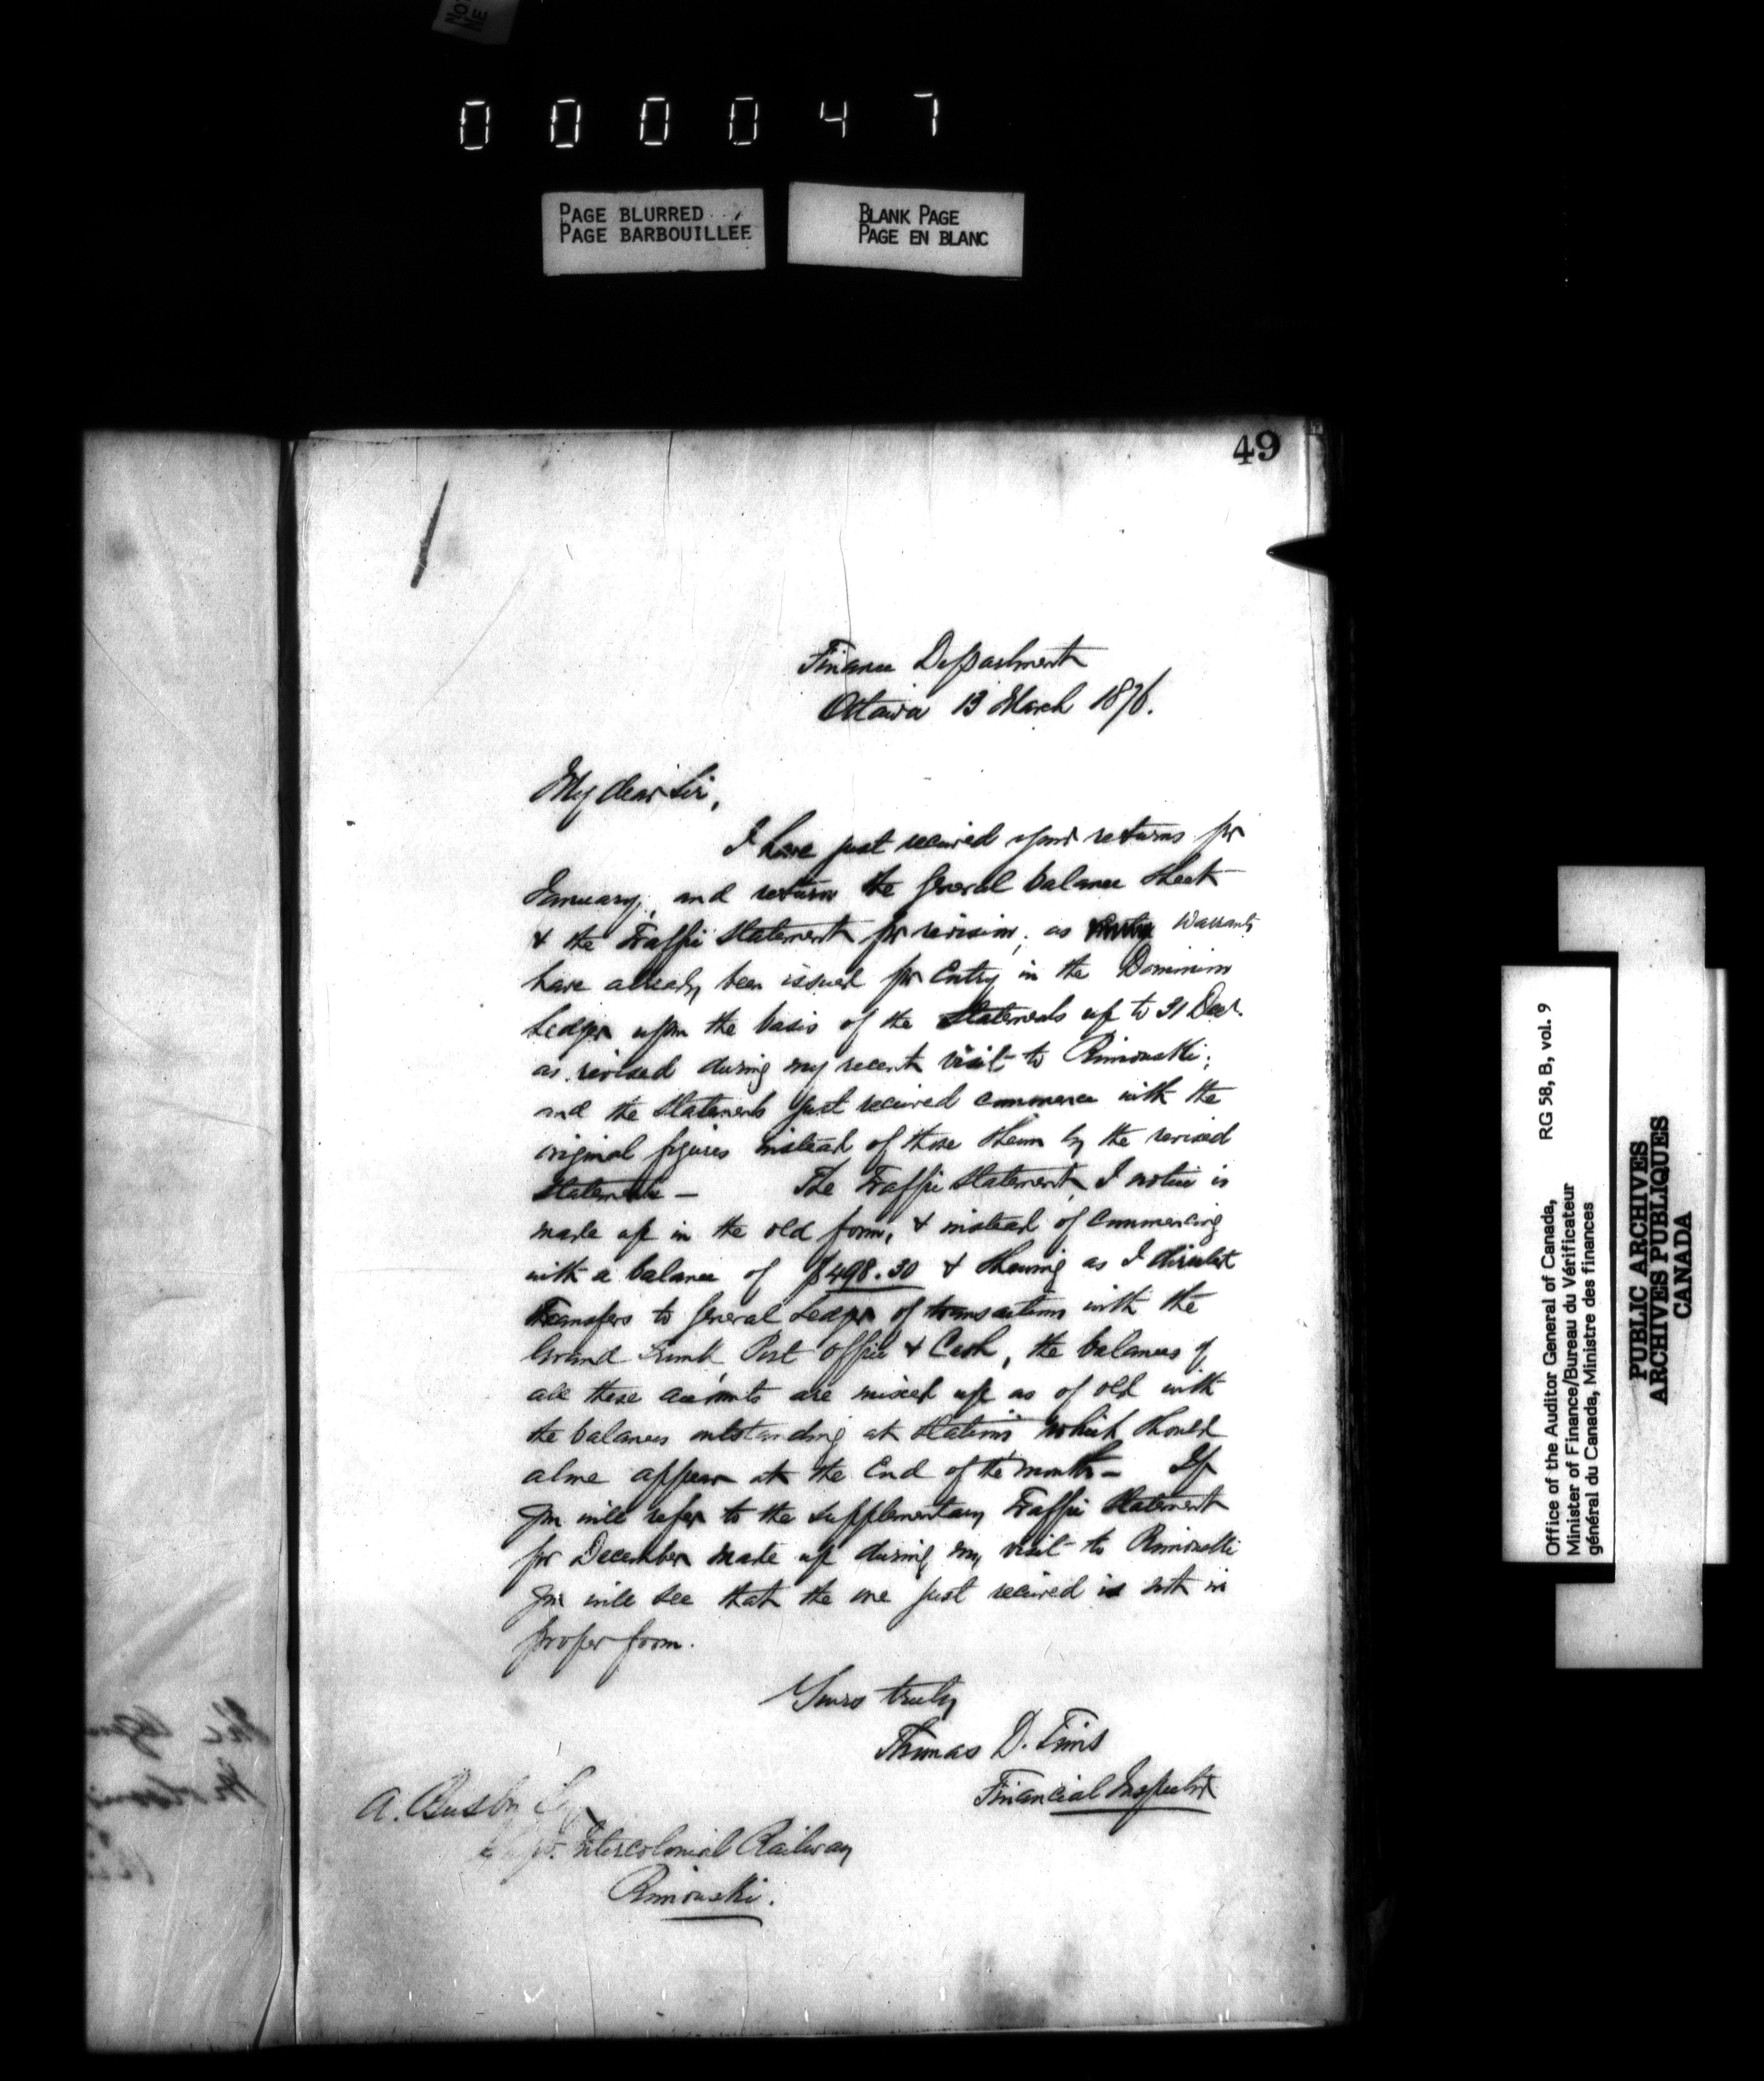 000047
PAGE BLURRED
PAGE BARBOUILLEE
BLANK PAGE
PAGE EN BLANC
49
Finance Department
Ottawa 13 March 1876.
My dear Sir,
I have just received your returns for
January, and return the General balance sheet
& the Traffic Statement for revision, as Warrants
have already been issued for Entry in the Dominion
Ledger upon the basis of the Statements up to 31 Decr.
as revised during my recent visit to Rimouski;
and the Statements just received commence with the
original figures instead of those shewn by the revised
Statements — The Traffic Statement, I notice is
made up in the old form, & instead of commencing
with a balance of $498.30 & shewing as I directed
Transfers to General Ledger of transactions with the
Grand Trunk Post Office & Cash, the balances of
all these accounts are mixed up as of old with
the balances outstanding at stations which should
alone appear at the End of the month — If
you will refer to the supplementary Traffic Statement
for December made up during my visit to Rimouski
you will see that the one just received is not in
proper form.
Yours truly
Thomas D. Tims
Financial Inspector
A. Busby Esq
Intercolonial Railway
Rimouski.
Office of the Auditor General of Canada,
Minister of Finance/Bureau du Vérificateur
général du Canada, Ministre des finances
RG 58, B, vol. 9
PUBLIC ARCHIVES
ARCHIVES PUBLIQUES
CANADA